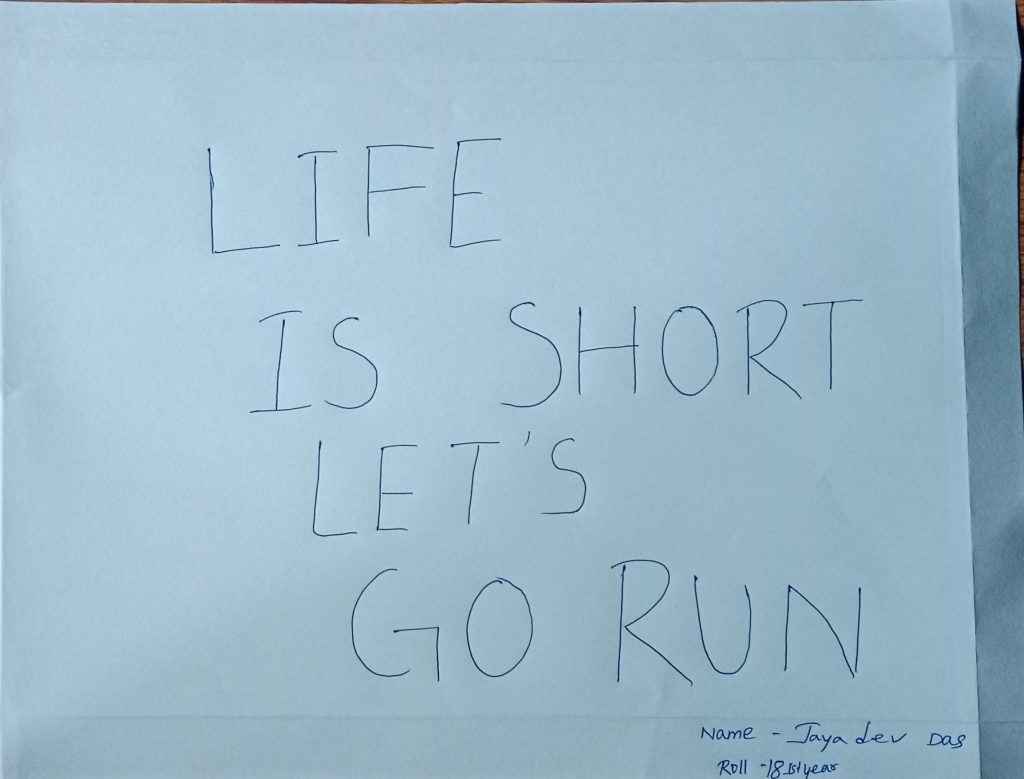 LIFE
IS SHORT
LET'S
GO RUN
Name - Jayadev Das
Roll -18 1st year